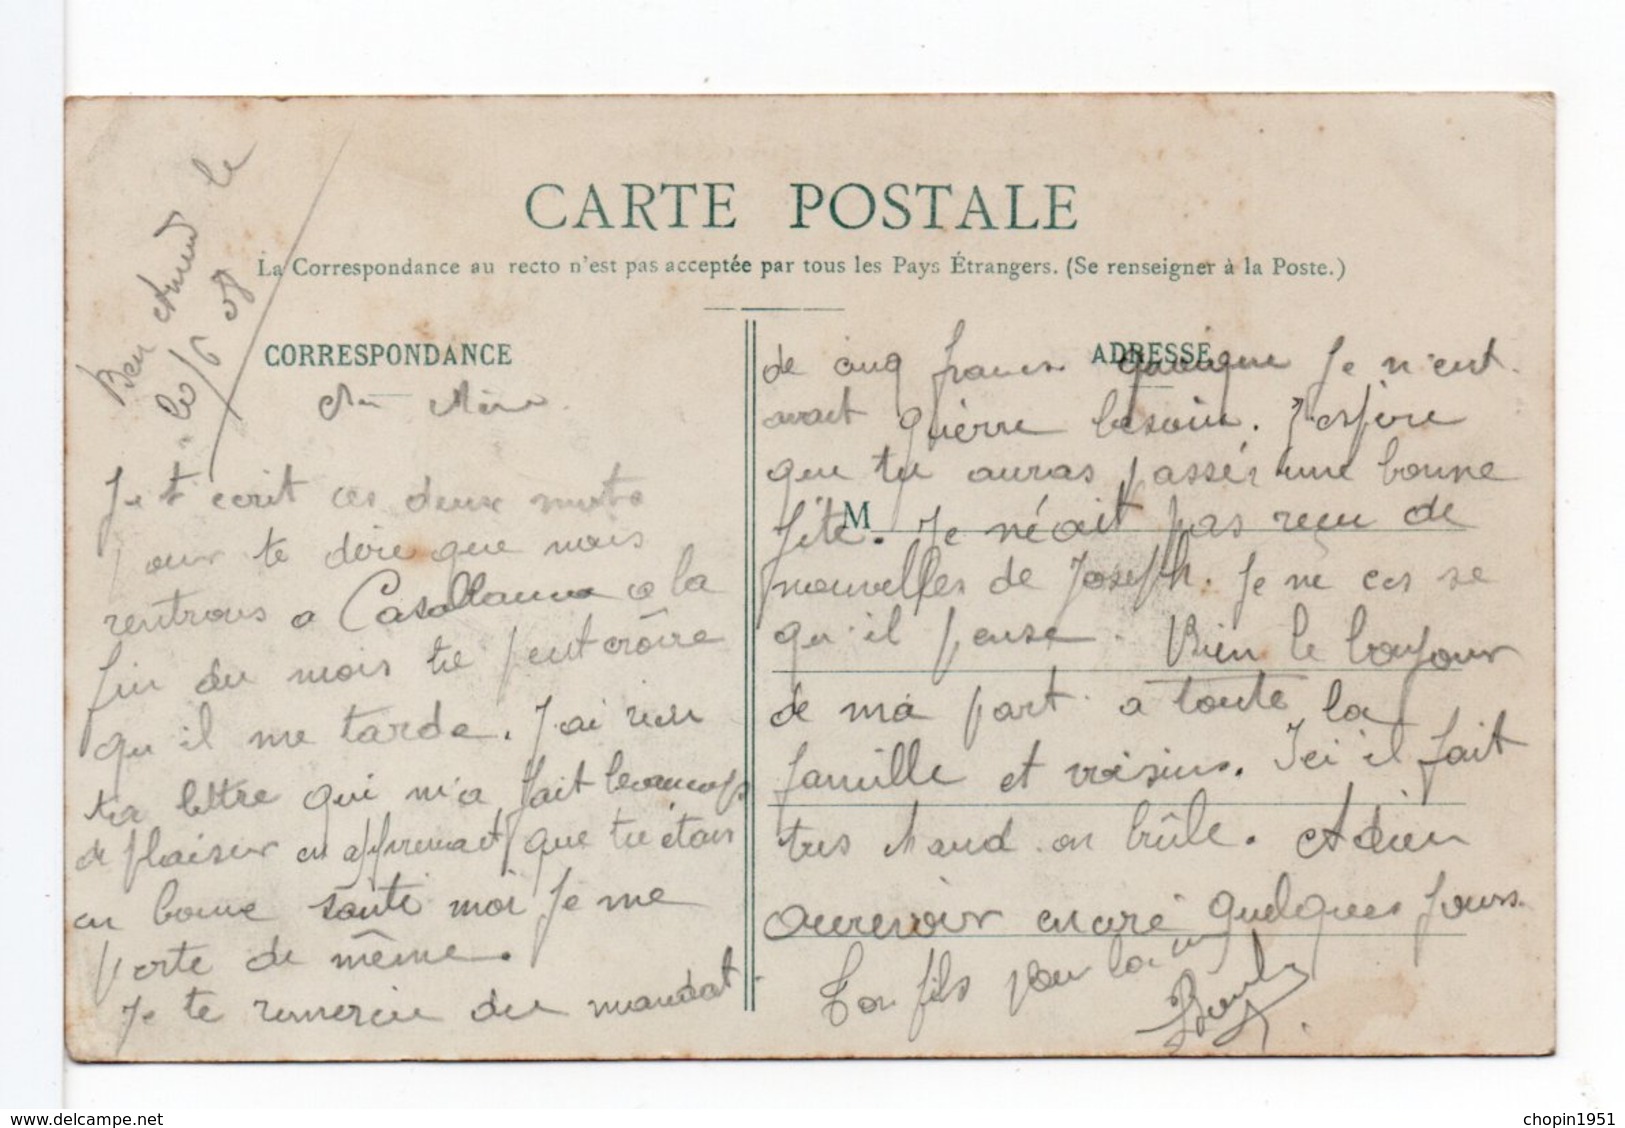 Ben Ahmed le
20/6 08
CARTE POSTALE
La Correspondance au recto n'est pas acceptée par tous les Pays Étrangers. (Se renseigner à la Poste.)
CORRESPONDANCE
Ma Mère
Je t'écrit ces deux mots
pour te dire que nous
rentrons a Casablanca a la
fin du mois tu peut croire
qu il me tarde. J'ai reçu
ta lettre qui m'a fait beaucoup
de plaisir en apprenant que tu étais
en bonne santé moi Je me
porte de même.
Je te remercie du mandat
ADRESSE
de cinq francs quoique Je n'en
avait guierre besoin. J'espére
que tu auras passer une bonne
M
fête. Je n'éait pas recu de
nouvelles de Joseph. Je ne ces se
qu'il pense. Bien le bonjour
de ma part a toute la
famille et voisins. Ici il fait
tres chaud on brûle. Adieu
aurevoir encore quelques jours.
Ton fils pour la vie
delcampe.net
chopin1951